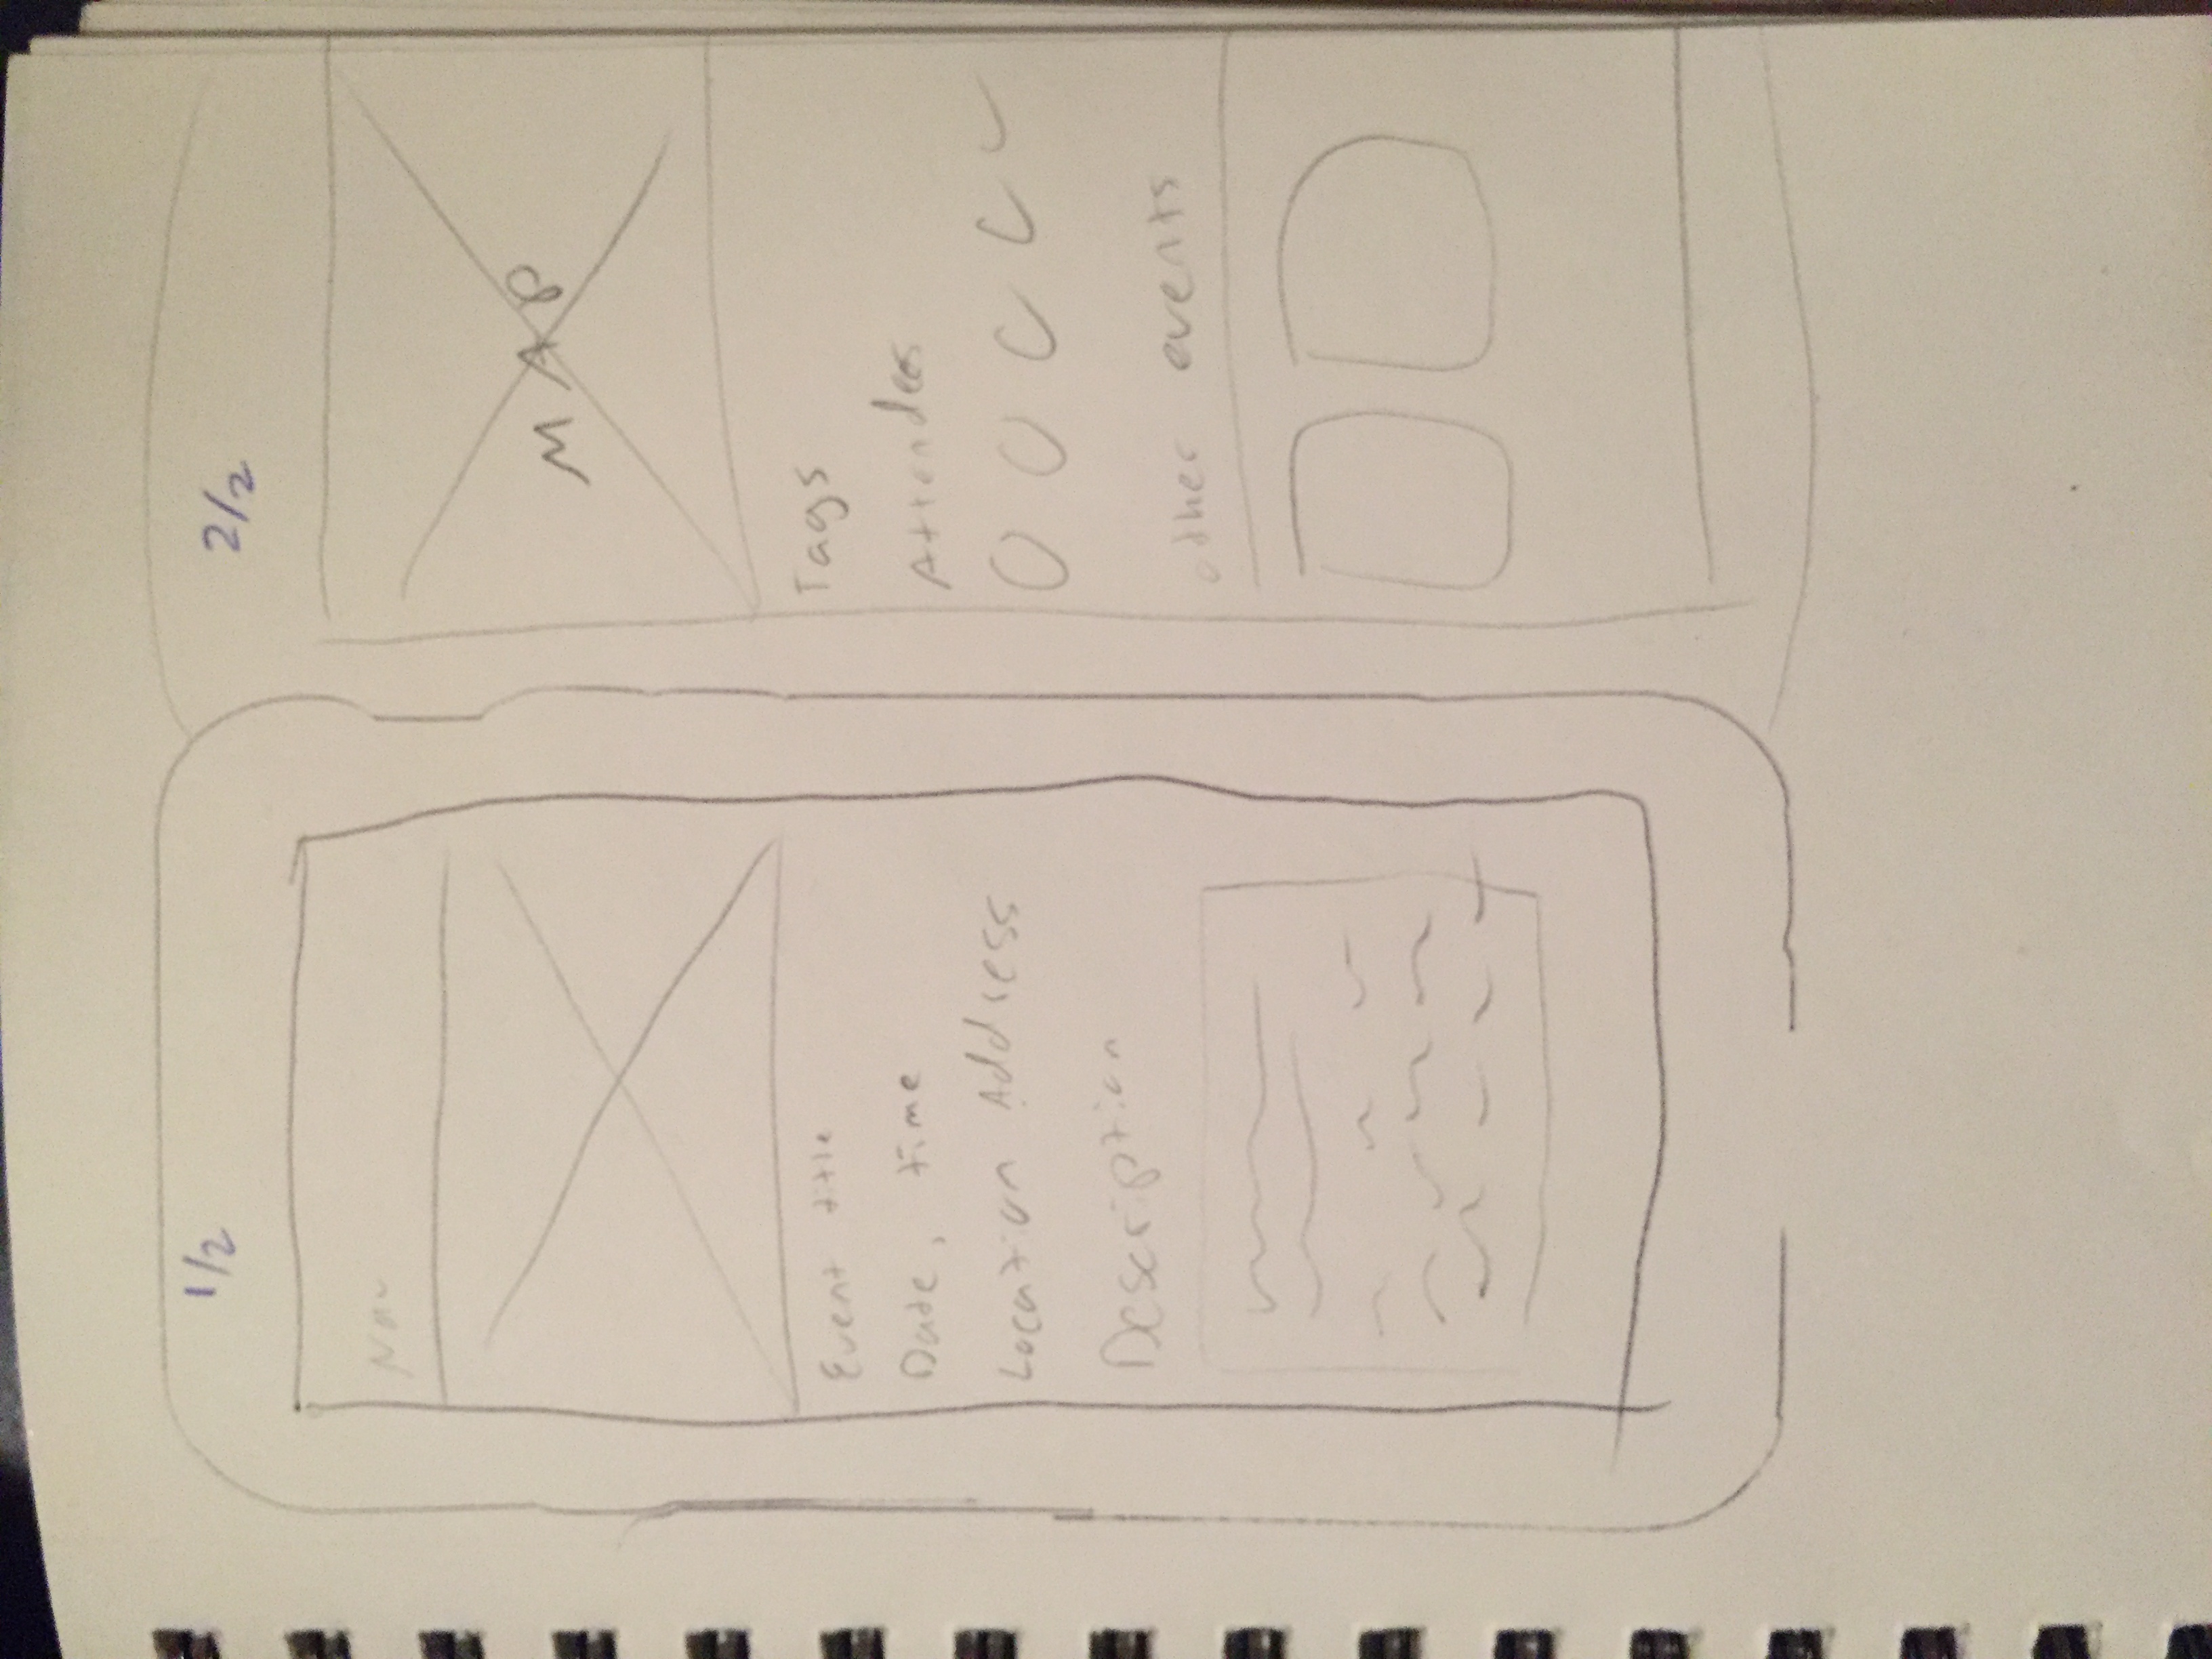 1/2
Nav
Event title
Date, time
Location Address
Description
2/2
MAP
Tags
Attendees
other events